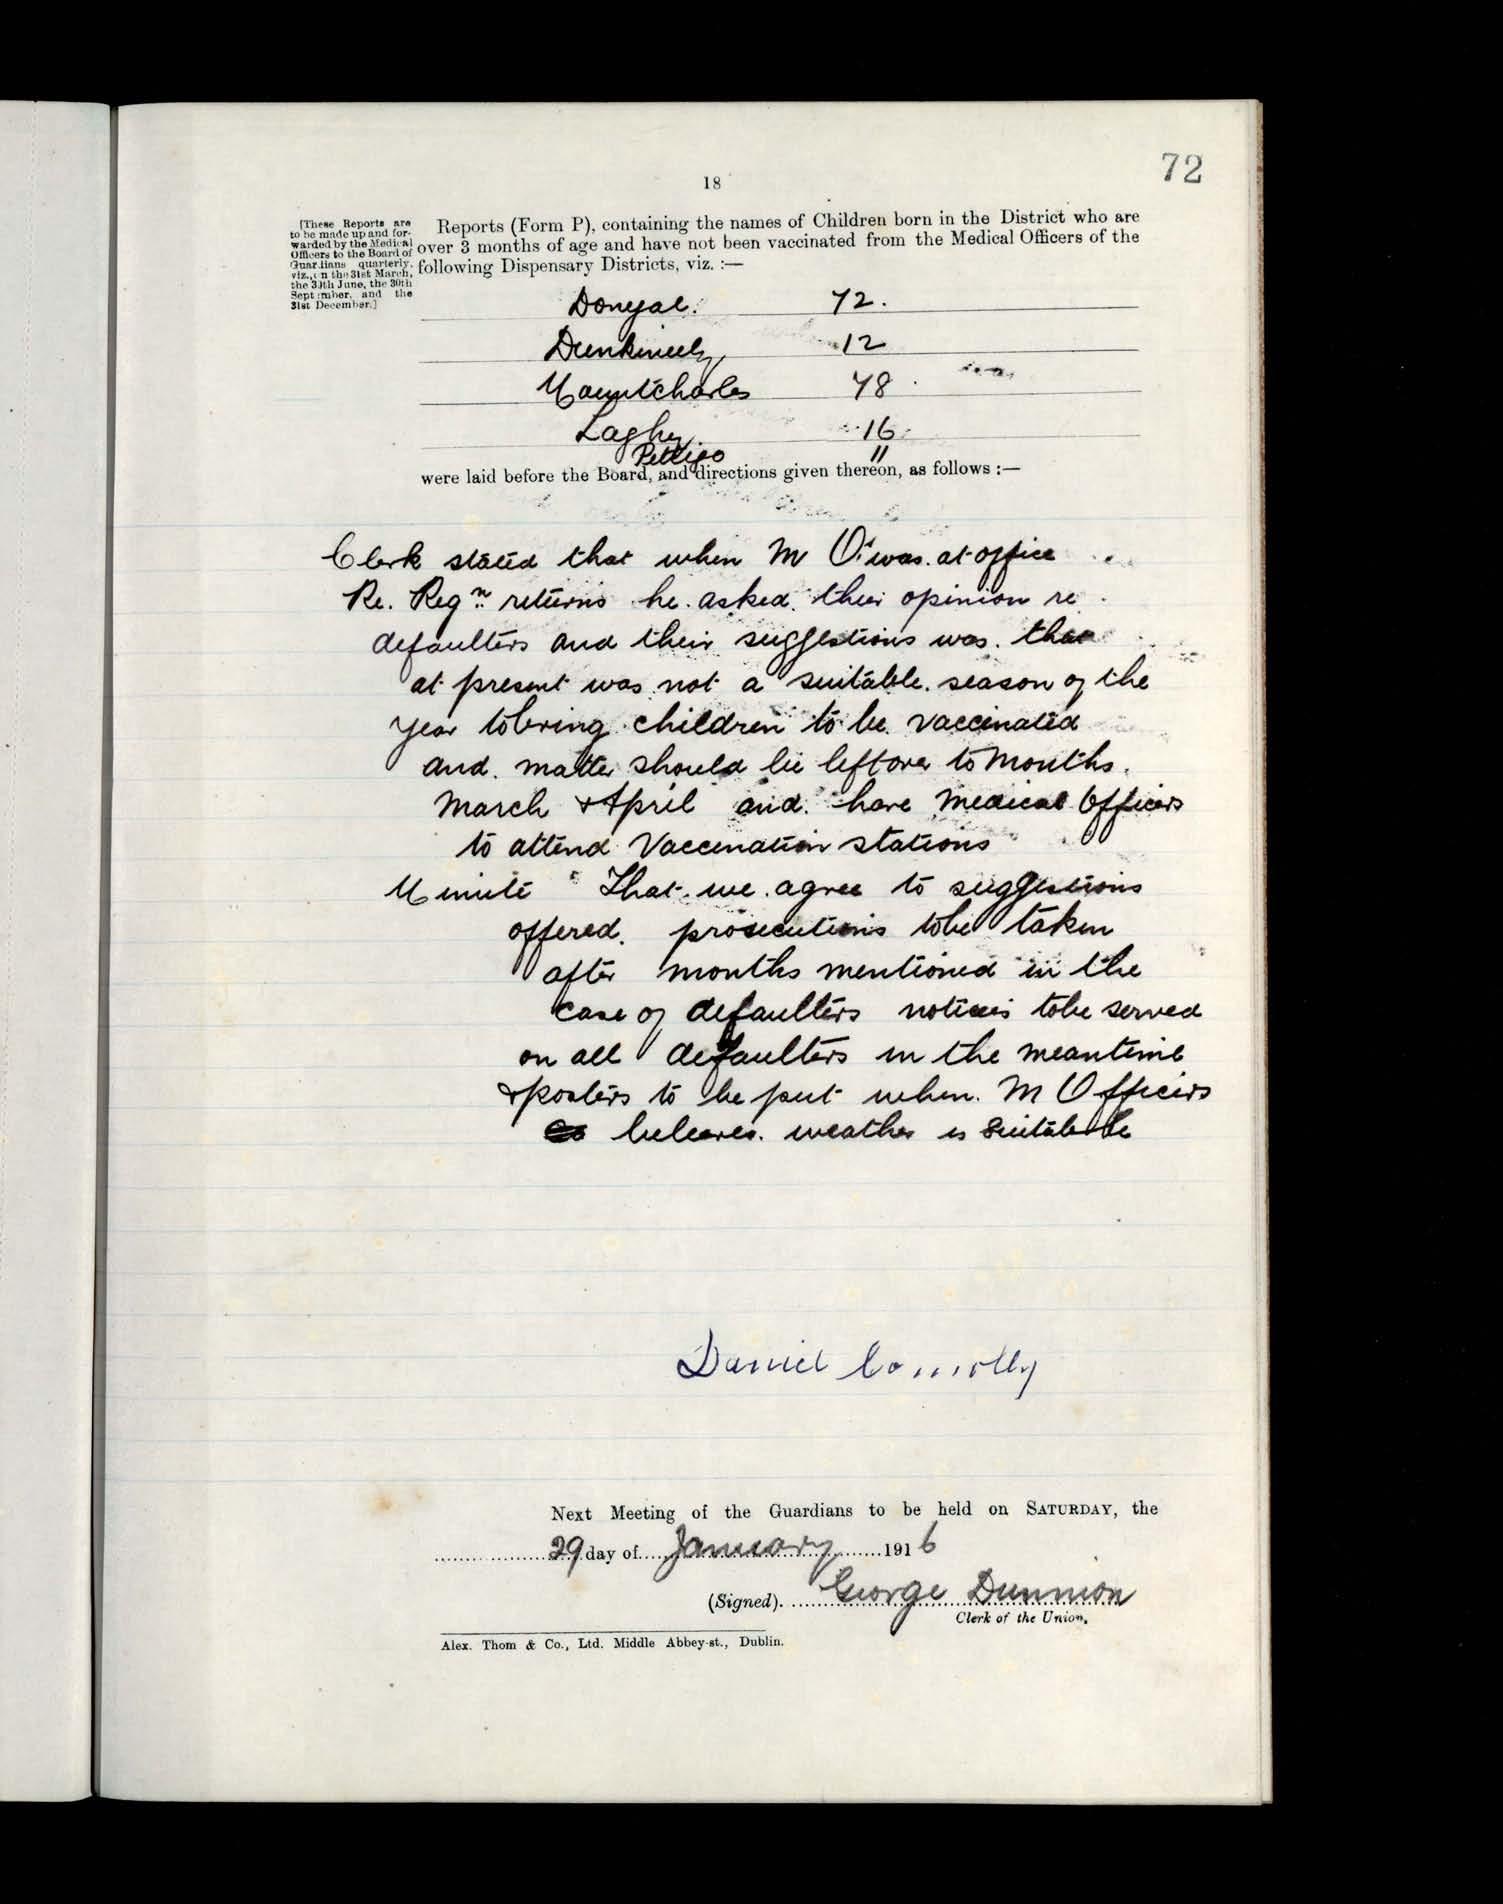 72
18
[These Reports are
to be made up and for-
warded by the Medical
Officers to the Board of
Guardians quarterly,
viz., on the 31st March,
the 30th June, the 30th
September, and the
31st December.]
Reports (Form P), containing the names of Children born in the District who are
over 3 months of age and have not been vaccinated from the Medical Officers of the
following Dispensary Districts, viz. :—
Donegal. 72.
Dunkineely 12
Mountcharles 78
Laghy. 16
Pettigo 11
were laid before the Board, and directions given thereon, as follows :—
Clerk stated that when M Os was at office
Re. Regn. returns he asked their opinion re
defaulters and their suggestions was. that
at present was not a suitable season of the
year to bring children to be vaccinated
and matter should be left over to months.
March & April and have Medical Officers
to attend Vaccination stations
Minute "That we agree to suggestions
offered. prosecutions to be taken
after months mentioned in the
case of defaulters notices to be served
on all defaulters in the meantime
& posters to be put when. M Officers
beleaves. weather is suitable
Daniel Connolly
Next Meeting of the Guardians to be held on SATURDAY, the
29 day of January 1916
(Signed). George Dunnion
Clerk of the Union.
Alex. Thom & Co., Ltd. Middle Abbey-st., Dublin.